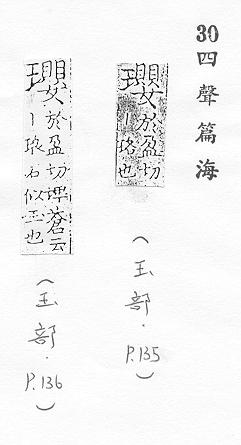 30 四聲篇海
瓔 於盈切
丨珞也
(玉部．P.135)
於盈切埤蒼云
丨珞石似玉也
(玉部．P.136)